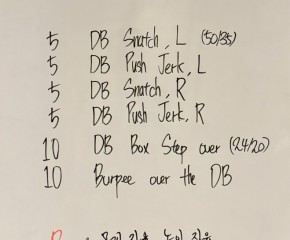 5 DB Snatch, L (50/35)
5 DB Push Jerk, L
5 DB Snatch, R
5 DB Push Jerk, R
10 DB Box Step over (24/20)
10 Burpee over the DB